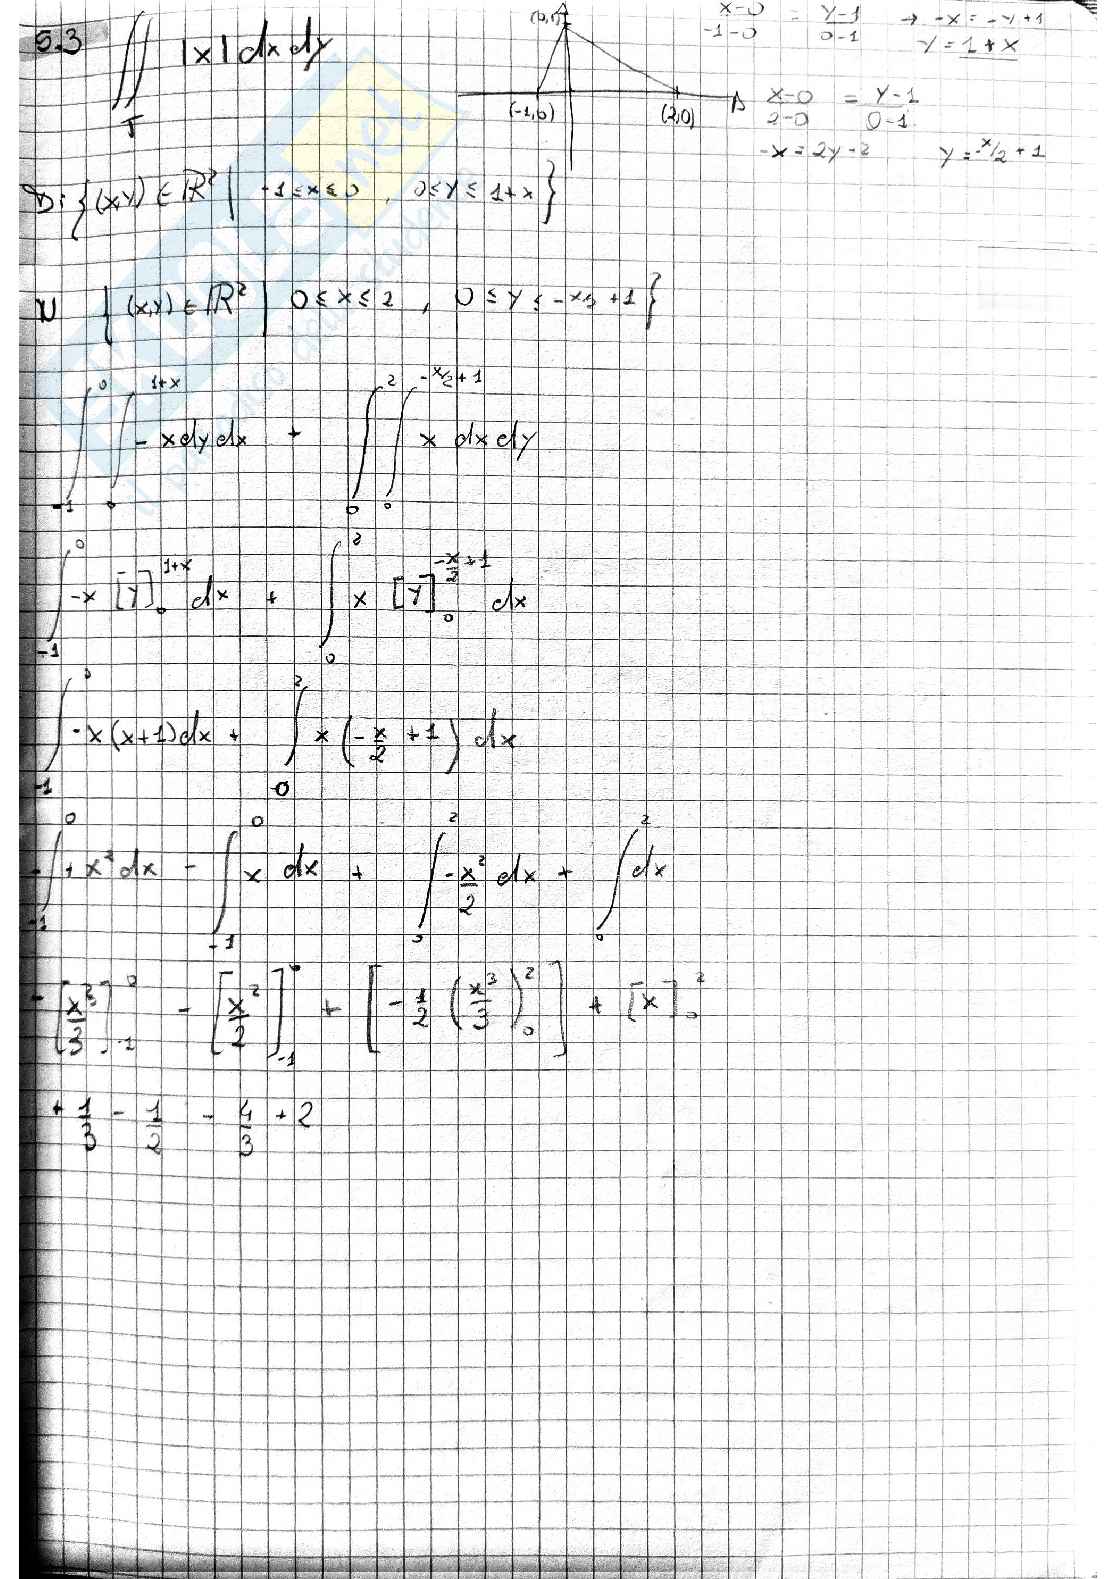 5.3 ∬_T |x| dx dy
(0,1)
(-1,0) (2,0)
x-0/-1-0 = y-1/0-1 → -x = -y+1
y = 1+x
x-0/2-0 = y-1/0-1
-x = 2y-2 y = -x/2 + 1
D: {(x,y) ∈ ℝ² | -1 ≤ x ≤ 0 , 0 ≤ y ≤ 1+x}
U {(x,y) ∈ ℝ² | 0 ≤ x ≤ 2 , 0 ≤ y ≤ -x/2 + 1}
∫_{-1}^{0} ∫_{0}^{1+x} -x dy dx + ∫_{0}^{2} ∫_{0}^{-x/2+1} x dx dy
∫_{-1}^{0} -x [y]_{0}^{1+x} dx + ∫_{0}^{2} x [y]_{0}^{-x/2+1} dx
∫_{-1}^{0} -x(x+1) dx + ∫_{0}^{2} x(-x/2 + 1) dx
-∫_{-1}^{0} +x² dx - ∫_{-1}^{0} x dx + ∫_{0}^{2} -x²/2 dx + ∫_{0}^{2} dx
-[x³/3]_{-1}^{0} - [x²/2]_{-1}^{0} + [-1/2 (x³/3)_{0}^{2}] + [x]_{0}^{2}
+ 1/3 - 1/2 - 4/3 + 2